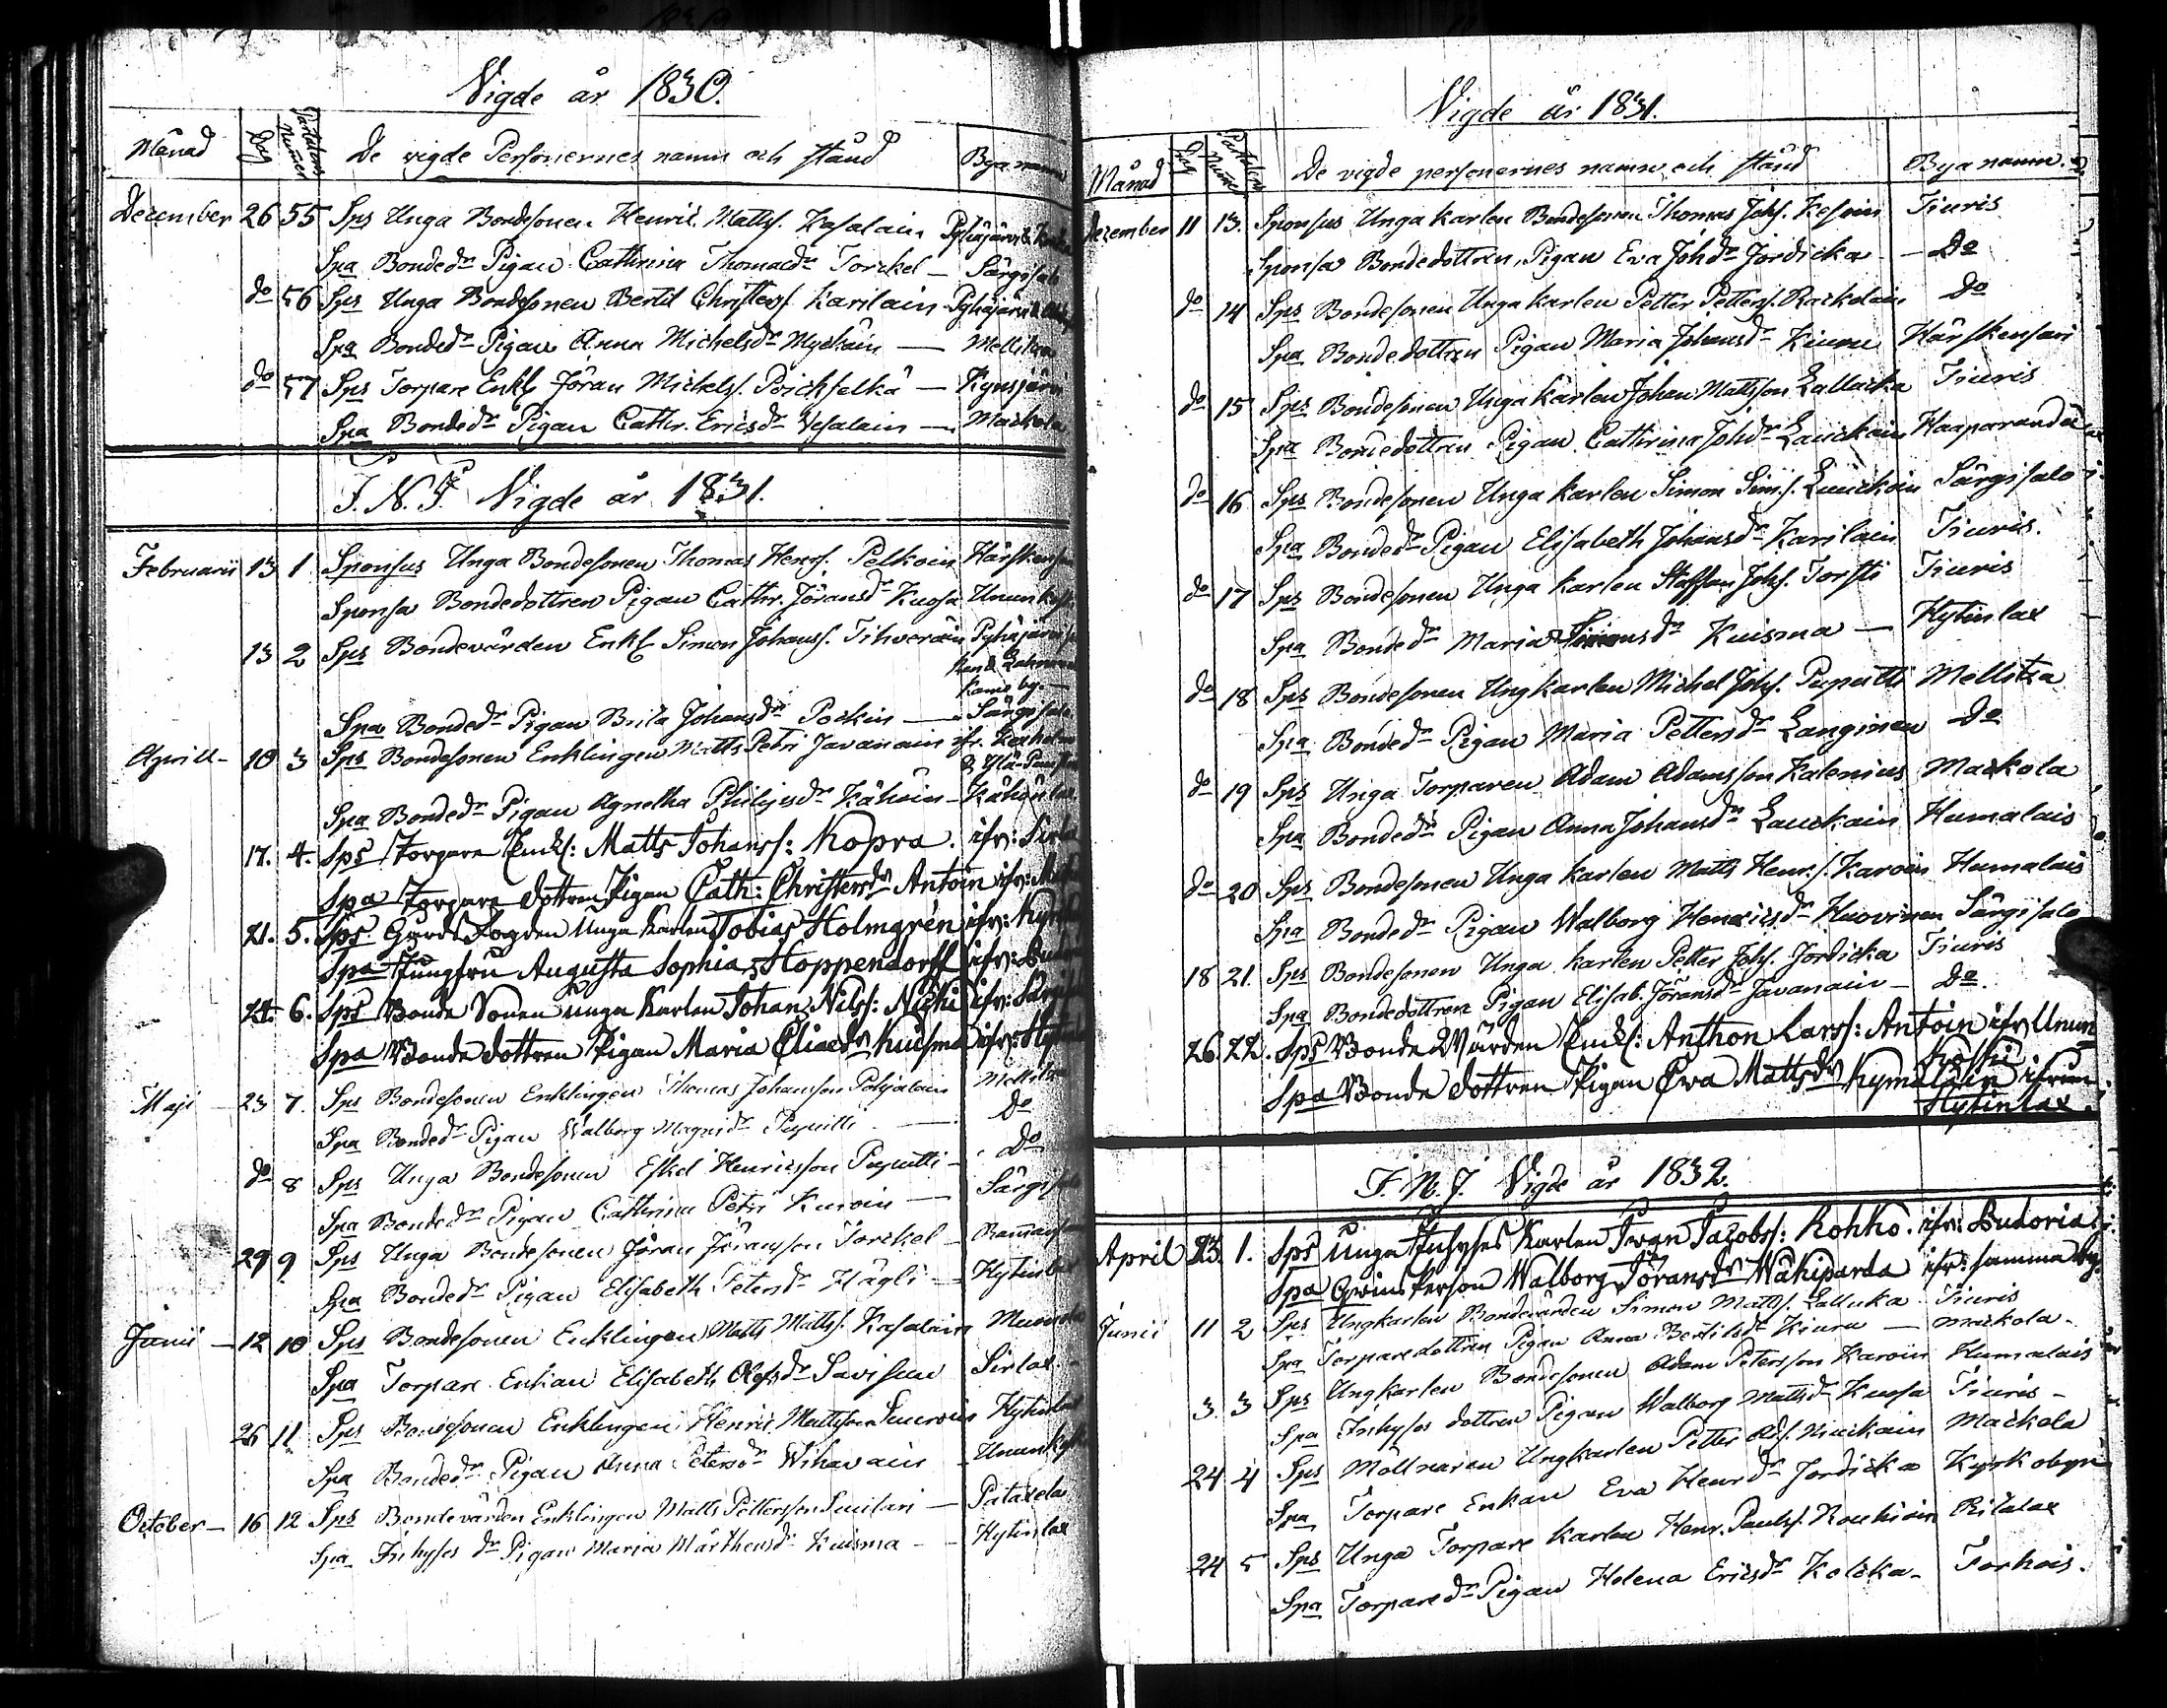 Vigde år 1830.
Månad Dag Partetens Numer De vigde Personernes namn och stånd Bya namn
December 26 55 Sps Unga Bondesonen Henric Mattss. Kasalain Pyhäjärvi &
Spa Bonded:r Pigan Cathrina Thomæd:r Torckel — Särgisalo
d:o 56 Sps Unga Bondesonen Bertil Christerss. Karilain Pyhäjärvi &
Spa Bonded:r Pigan Anna Michelsd:r Myckäin — Mellitza
d:o 57 Sps Torpare Enkl. Jöran Michelss. Poickselkä — Kynsjärvi
Spa Bonded:r Pigan Cathr. Ericsd:r Vesalain — Mackola
J. N. J. Vigde år 1831.
Februarii 13 1 Sponsus Unga Bondesonen Thomas Henrss. Pelkoin
Sponsa Bondedottren Pigan Cathr. Jöransd:r Kuosa
13 2 Sps Bondevärden Enkl. Simon Johanss. Tihveräin Pyhäjärvi
by. —
Spa Bonded:r Pigan Brita Johansd:r Pockin — Särgisalo
Aprill — 10 3 Sps Bondesonen Enklingen Matts Petri Javanain ifr. Kexholm
Spa Bonded:r Pigan Agnetha Philipsd:r Kähöin —
17. 4. Sps Torpare Enkl: Matts Johanss: Kopra. ifr:
Spa Torpare dottren Pigan Cath: Christersd:r Antoin ifr:
21. 5. Sps Gårds Fogden Unga Karlen Tobias Holmgrén ifr:
Spa Jungfru Augusta Sophia Hoppendorff ifr:
24. 6. Sps Bonde Sonen unga Karlen Johan Nilss: Nicki ifr:
Spa Bonde dottren Pigan Maria Eliaed:r Kuisma ifr:
Maji 23 7. Sps Bondesonen Enklingen Thomas Johansson Pohjalain Mellitza
Spa Bonded:r Pigan Walborg Magnsd:r Puputti — D:o
d:o 8 Sps Unga Bondesonen Eskel Henricsson Puputti — D:o
Spa Bonded:r Pigan Cathrina Petri Karoin — Särgisalo
29 9 Sps Unga Bondesonen Jöran Jöransson Torckel —
Spa Bonded:r Pigan Elisabeth Petersd:r Hägli — Hytinlax
Junii — 12 10 Sps Bondesonen Enklingen Matts Mattss. Kasalain
Spa Torpare Enkan Elisabeth Olofsd:r Savisuu Sirlax
26 11 Sps Bondesonen Enklingen Henric Mattsson Hytinlax
Spa Bonded:r Pigan Anna Petersd:r Wihavain
October — 16 12 Sps Bondevärden Enklingen Matts Pettersson Suitari —
Spa Inhyses d:r Pigan Maria Mårthensd:r Kuisma — Hytinlax
Vigde år 1831.
Månad Dag Partetens Numer De vigde personernes namn och stånd Bya namn.
December 11 13. Sponsus Unga karlen Bondesonen Thomas Johs. Kesoin Tiuris
Sponsa Bondedottren, Pigan Eva Johd:r Jördicka — D:o
d:o 14 Sps Bondesonen Unga karlen Petter Petterss. Rackolain D:o
Spa Bondedottren Pigan Maria Johansd:r Kiuru Härskensari
d:o 15 Sps Bondesonen Unga karlen Johan Mattsson Lallucka Tiuris
Spa Bondedottren Pigan Cathrina Johd:r Lauckain
d:o 16 Sps Bondesonen Unga karlen Simon Sims. Särgisalo
Spa Bonded:r Pigan Elisabeth Johansd:r Karilain Tiuris.
d:o 17 Sps Bondesonen Unga karlen Staffan Johs. Torsti Tiuris
Spa Bonded:r Maria Simonsd:r Kuisma — Hytinlax
d:o 18 Sps Bondesonen Ungkarlen Michel Johs. Puputti Mellitza
Spa Bonded:r Pigan Maria Pettersd:r Langinen D:o
d:o 19 Sps Unga Torparen Adam Adamsson Kalenius Mackola
Spa Bonded:r Pigan Anna Johansd:r Lauckain Humalais
d:o 20 Sps Bondesonen Unga karlen Matts Henr.s. Karoin Humalais
Spa Bonded:r Pigan Walborg Henricsd:r Huovinen Särgisalo
18 21. Sps Bondesonen Unga karlen Petter Johs. Jordicka Tiuris
Spa Bondedottren Pigan Elisab. Jöransd:r Javanain — D:o.
26 22. Sps Bonde Wärden Enkl: Anthon Larss: Antoin ifr. Unun
Koski
Spa Bonde dottren Pigan Eva Mattsd:r Kymäläin ifrån
Hytinlax.
J. N. J. Vigde år 1832.
April 23. 1. Sps Unga Inhyses Karlen Jacobss: Kohko. ifr: Sudoria
Spa Qvins Person Walborg Jöransd:r Wähiparta ifr: samma by.
Junii 11 2 Sps Ungkarlen Bondevärden Simon Mattss. Lallucka Tiuris
Spa Torparedottren Pigan Anna Bertilsd:r Kiuru — Mackola
3 3 Sps Ungkarlen Bondesonen Adam Petersson Karoin Humalais
Spa Inhyses dottren Pigan Walborg Mattsd:r Kuosa Tiuris —
24 4 Sps Möllnaren Ungkarlen Petter Mackola
Spa Torpare Enkan Eva Henrd:r Jordicka Kyrkobyn
24 5 Sps Unga Torpare karlen Henr. Paulss. Roukiain Riialax
Spa Torpared:r Pigan Helena Ericsd:r Kolcka — Torhois.